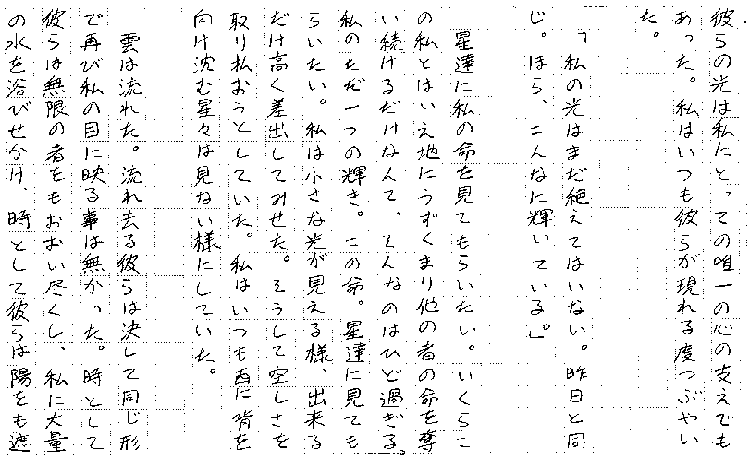 彼らの光は私にとっての唯一の心の支えでも
あった。私はいつも彼らが現れる度つぶやい
た。
「私の光はまだ絶えてはいない。昨日と同
じ。ほら、こんなに輝いている」。
星達に私の命を見てもらいたい。いくらこ
の私とはいえ地にうずくまり他の者の命を奪
い続けるだけなんて、そんなのはひど過ぎる。
私のただ一つの輝き。この命。星達に見ても
らいたい。私は小さな光が見える様、出来る
だけ高く差出してみせた。そうして空しさを
取り払おうとしていた。私はいつも西に背を
向け沈む星々は見ない様にしていた。
雲は流れた。流れ去る彼らは決して同じ形
で再び私の目に映る事は無かった。時として
彼らは無限の者をもおおい尽くし、私に大量
の水を浴びせかけ 時として彼らは陽をも遮